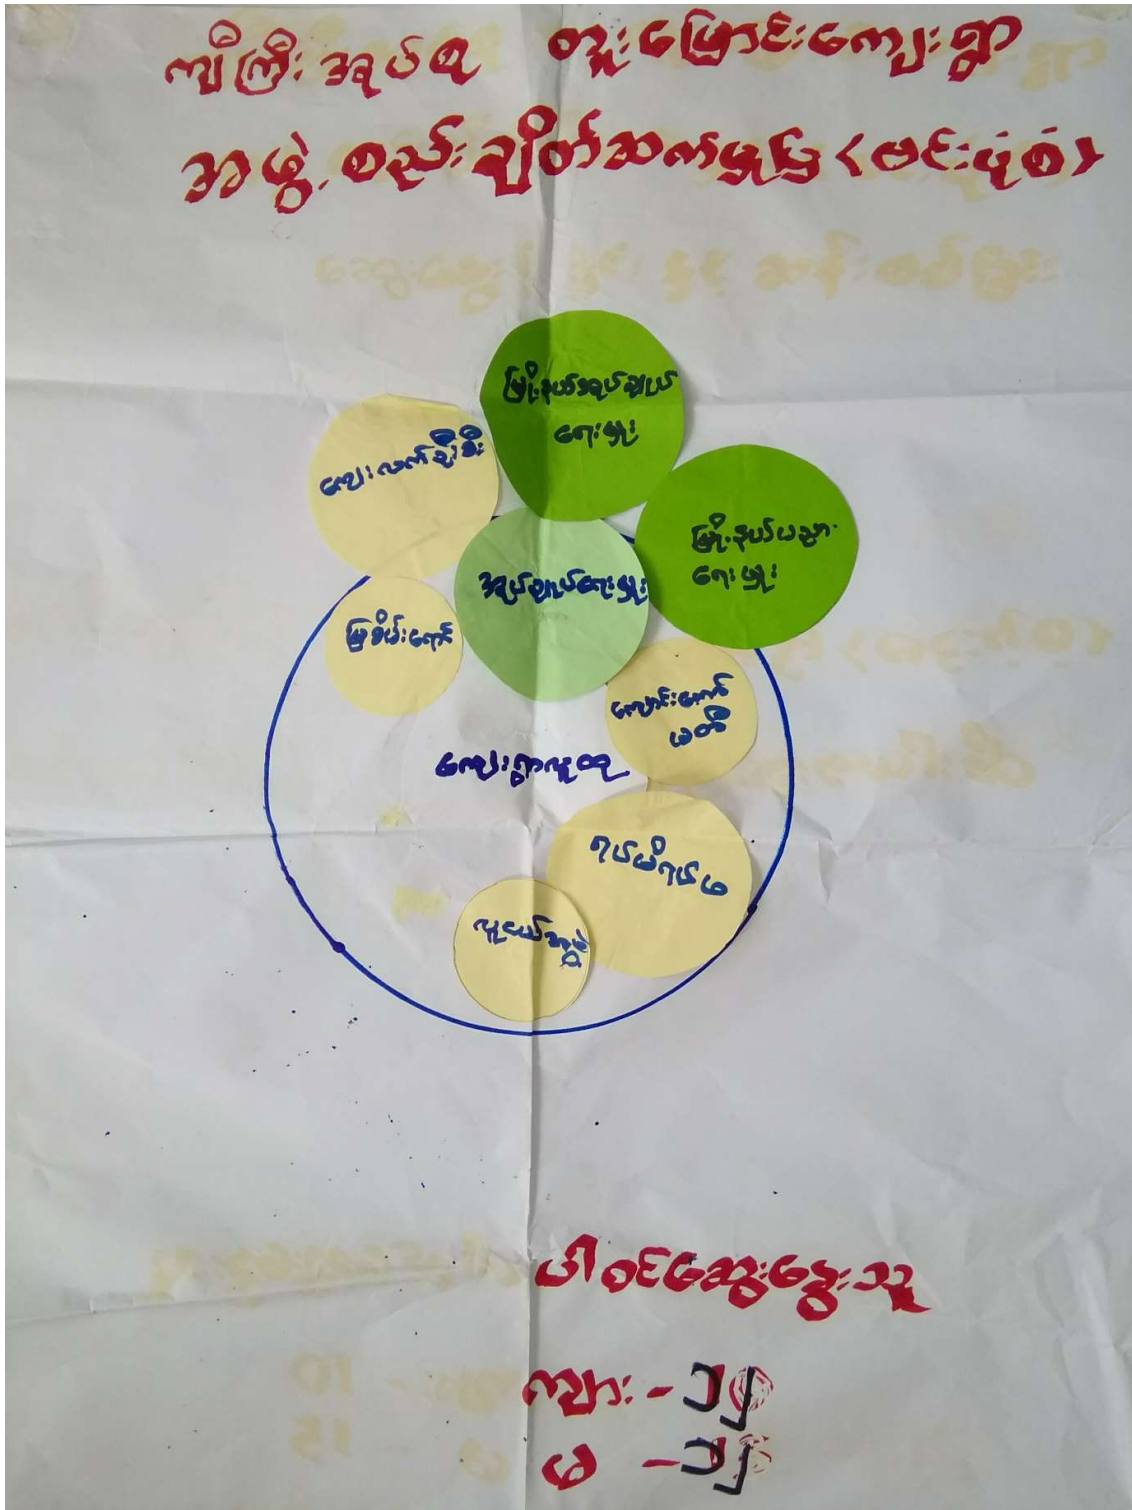 ကျီကြီးအုပ်စု တူးမြောင်းကျေးရွာ
အဖွဲ့စည်းချိတ်ဆက်မှုပြ (ဗင်းပုံစံ)
မြို့နယ်အုပ်ချုပ်
ရေးမှူး
ကျေးလက်ဦးစီး
မြို့နယ်ပညာ
ရေးမှူး
အုပ်ချုပ်ရေးမှူး
မြစိမ်းရောင်
ကျောင်းကော်
မတီ
ကျေးရွာလူထု
ရပ်မိရပ်ဖ
လူငယ်အဖွဲ့
ပါဝင်ဆွေးနွေးသူ
ကျား -
မ -